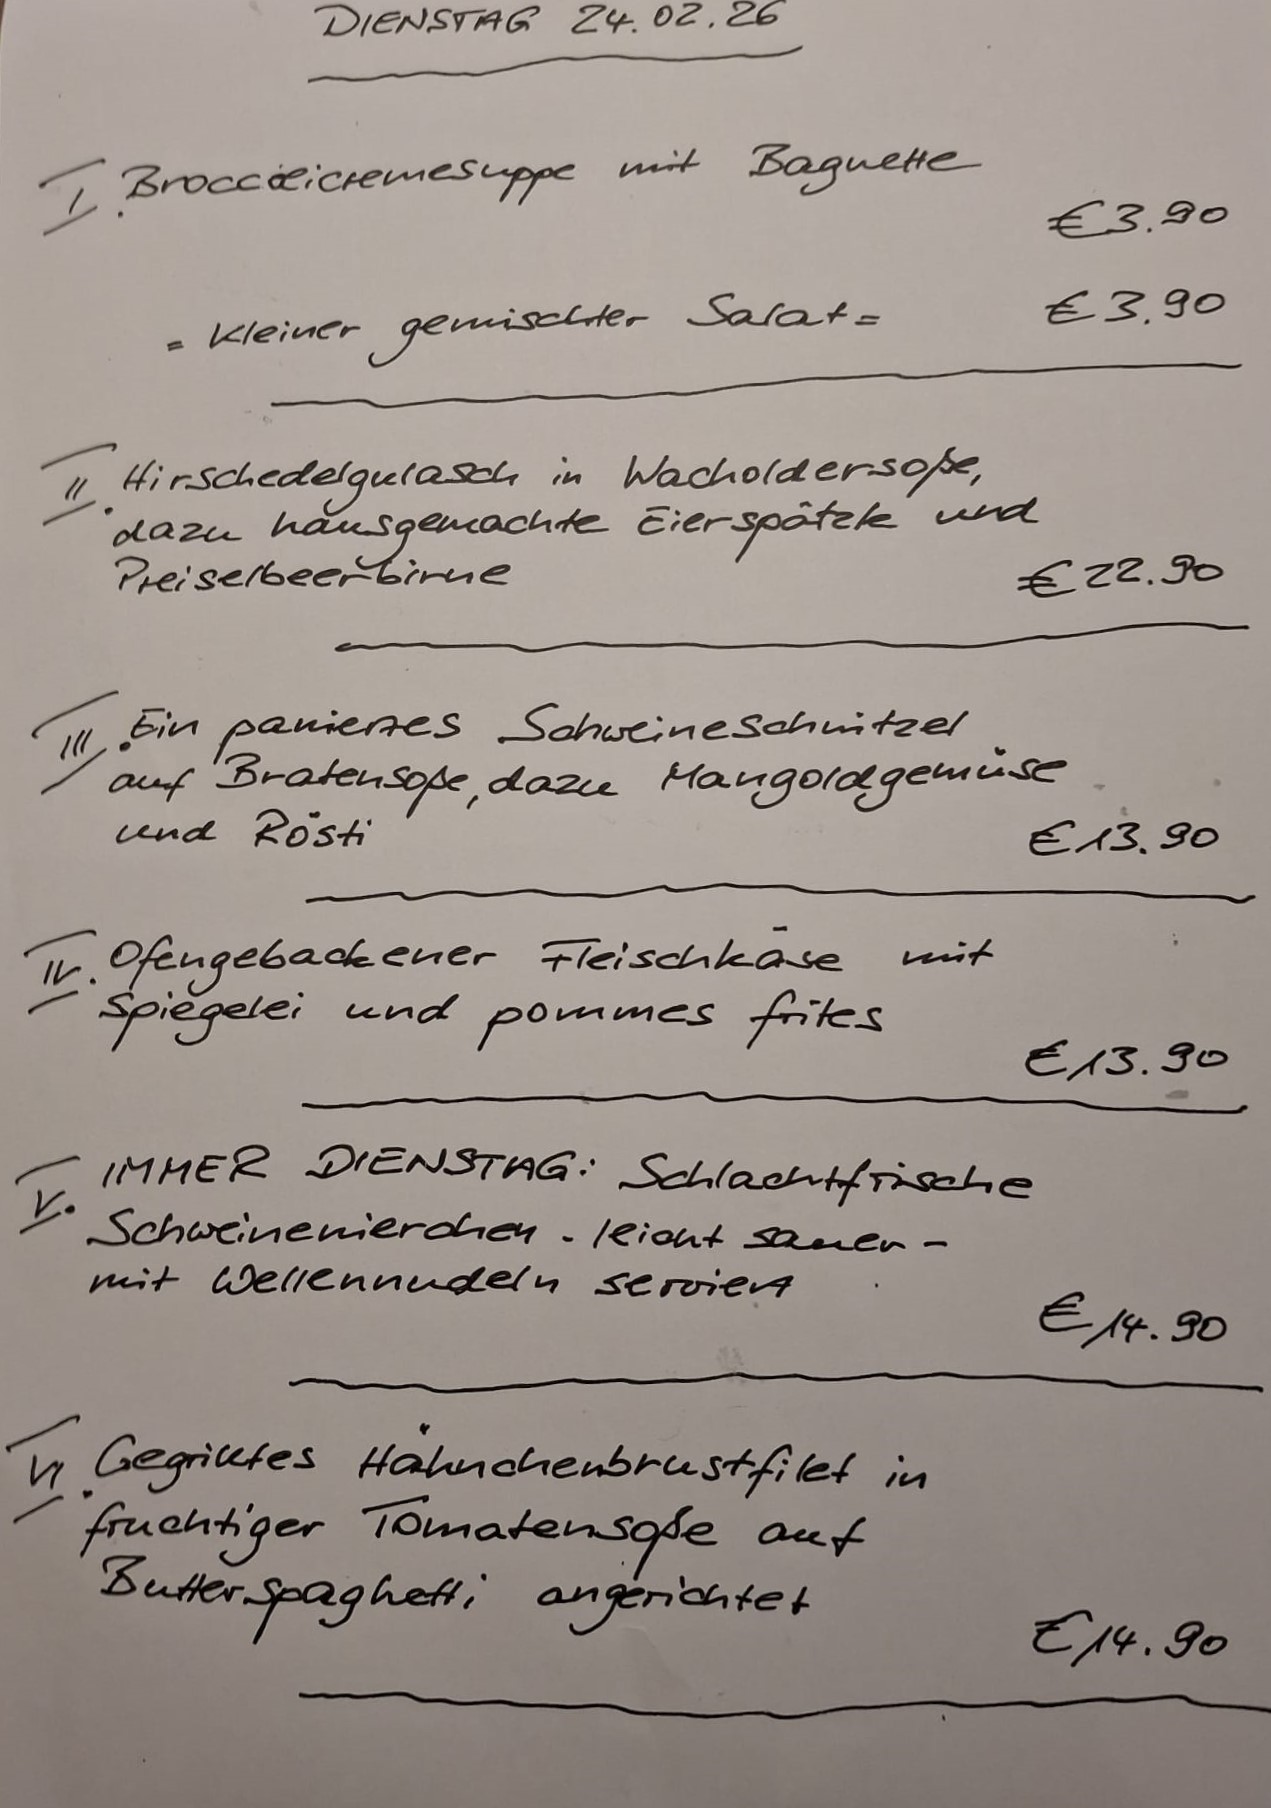 DIENSTAG 24.02.26
I. Broccolicremesuppe mit Baguette
€3.90
= kleiner gemischter Salat = €3.90
II. Hirschedelgulasch in Wacholdersoße,
dazu hausgemachte Eierspätzle und
Preiselbeerbirne €22.90
III. Ein paniertes Schweineschnitzel
auf Bratensoße, dazu Mangoldgemüse
und Rösti €13.90
IV. Ofengebackener Fleischkäse mit
Spiegelei und pommes frites
€13.90
V. IMMER DIENSTAG: Schlachtfrische
Schweinenierchen - leicht sauer -
mit Wellennudeln serviert
€14.90
VI. Gegrilltes Hähnchenbrustfilet in
fruchtiger Tomatensoße auf
Butterspaghetti angerichtet
€14.90